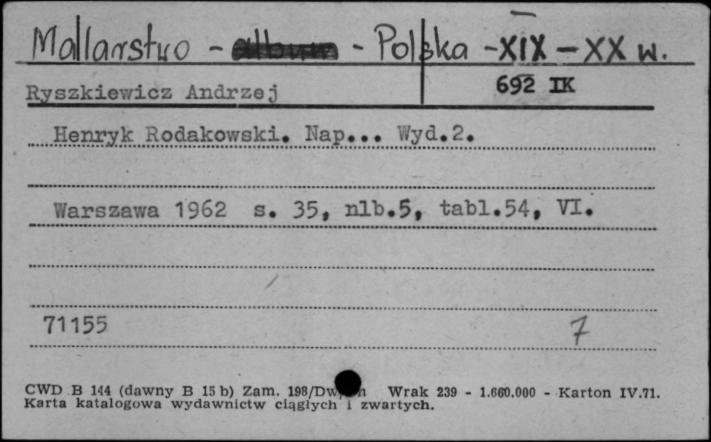 Malarstwo - album - Polska - XIX - XX w.
692 IK
Ryszkiewicz Andrzej
Henryk Rodakowski. Nap... Wyd.2.
Warszawa 1962 s. 35, nlb.5, tabl.54, VI.
71155 7
CWD B 144 (dawny B 15 b) Zam. 198/ Wrak 239 - 1.660.000 - Karton IV.71.
Karta katalogowa wydawnictw ciągłych i zwartych.